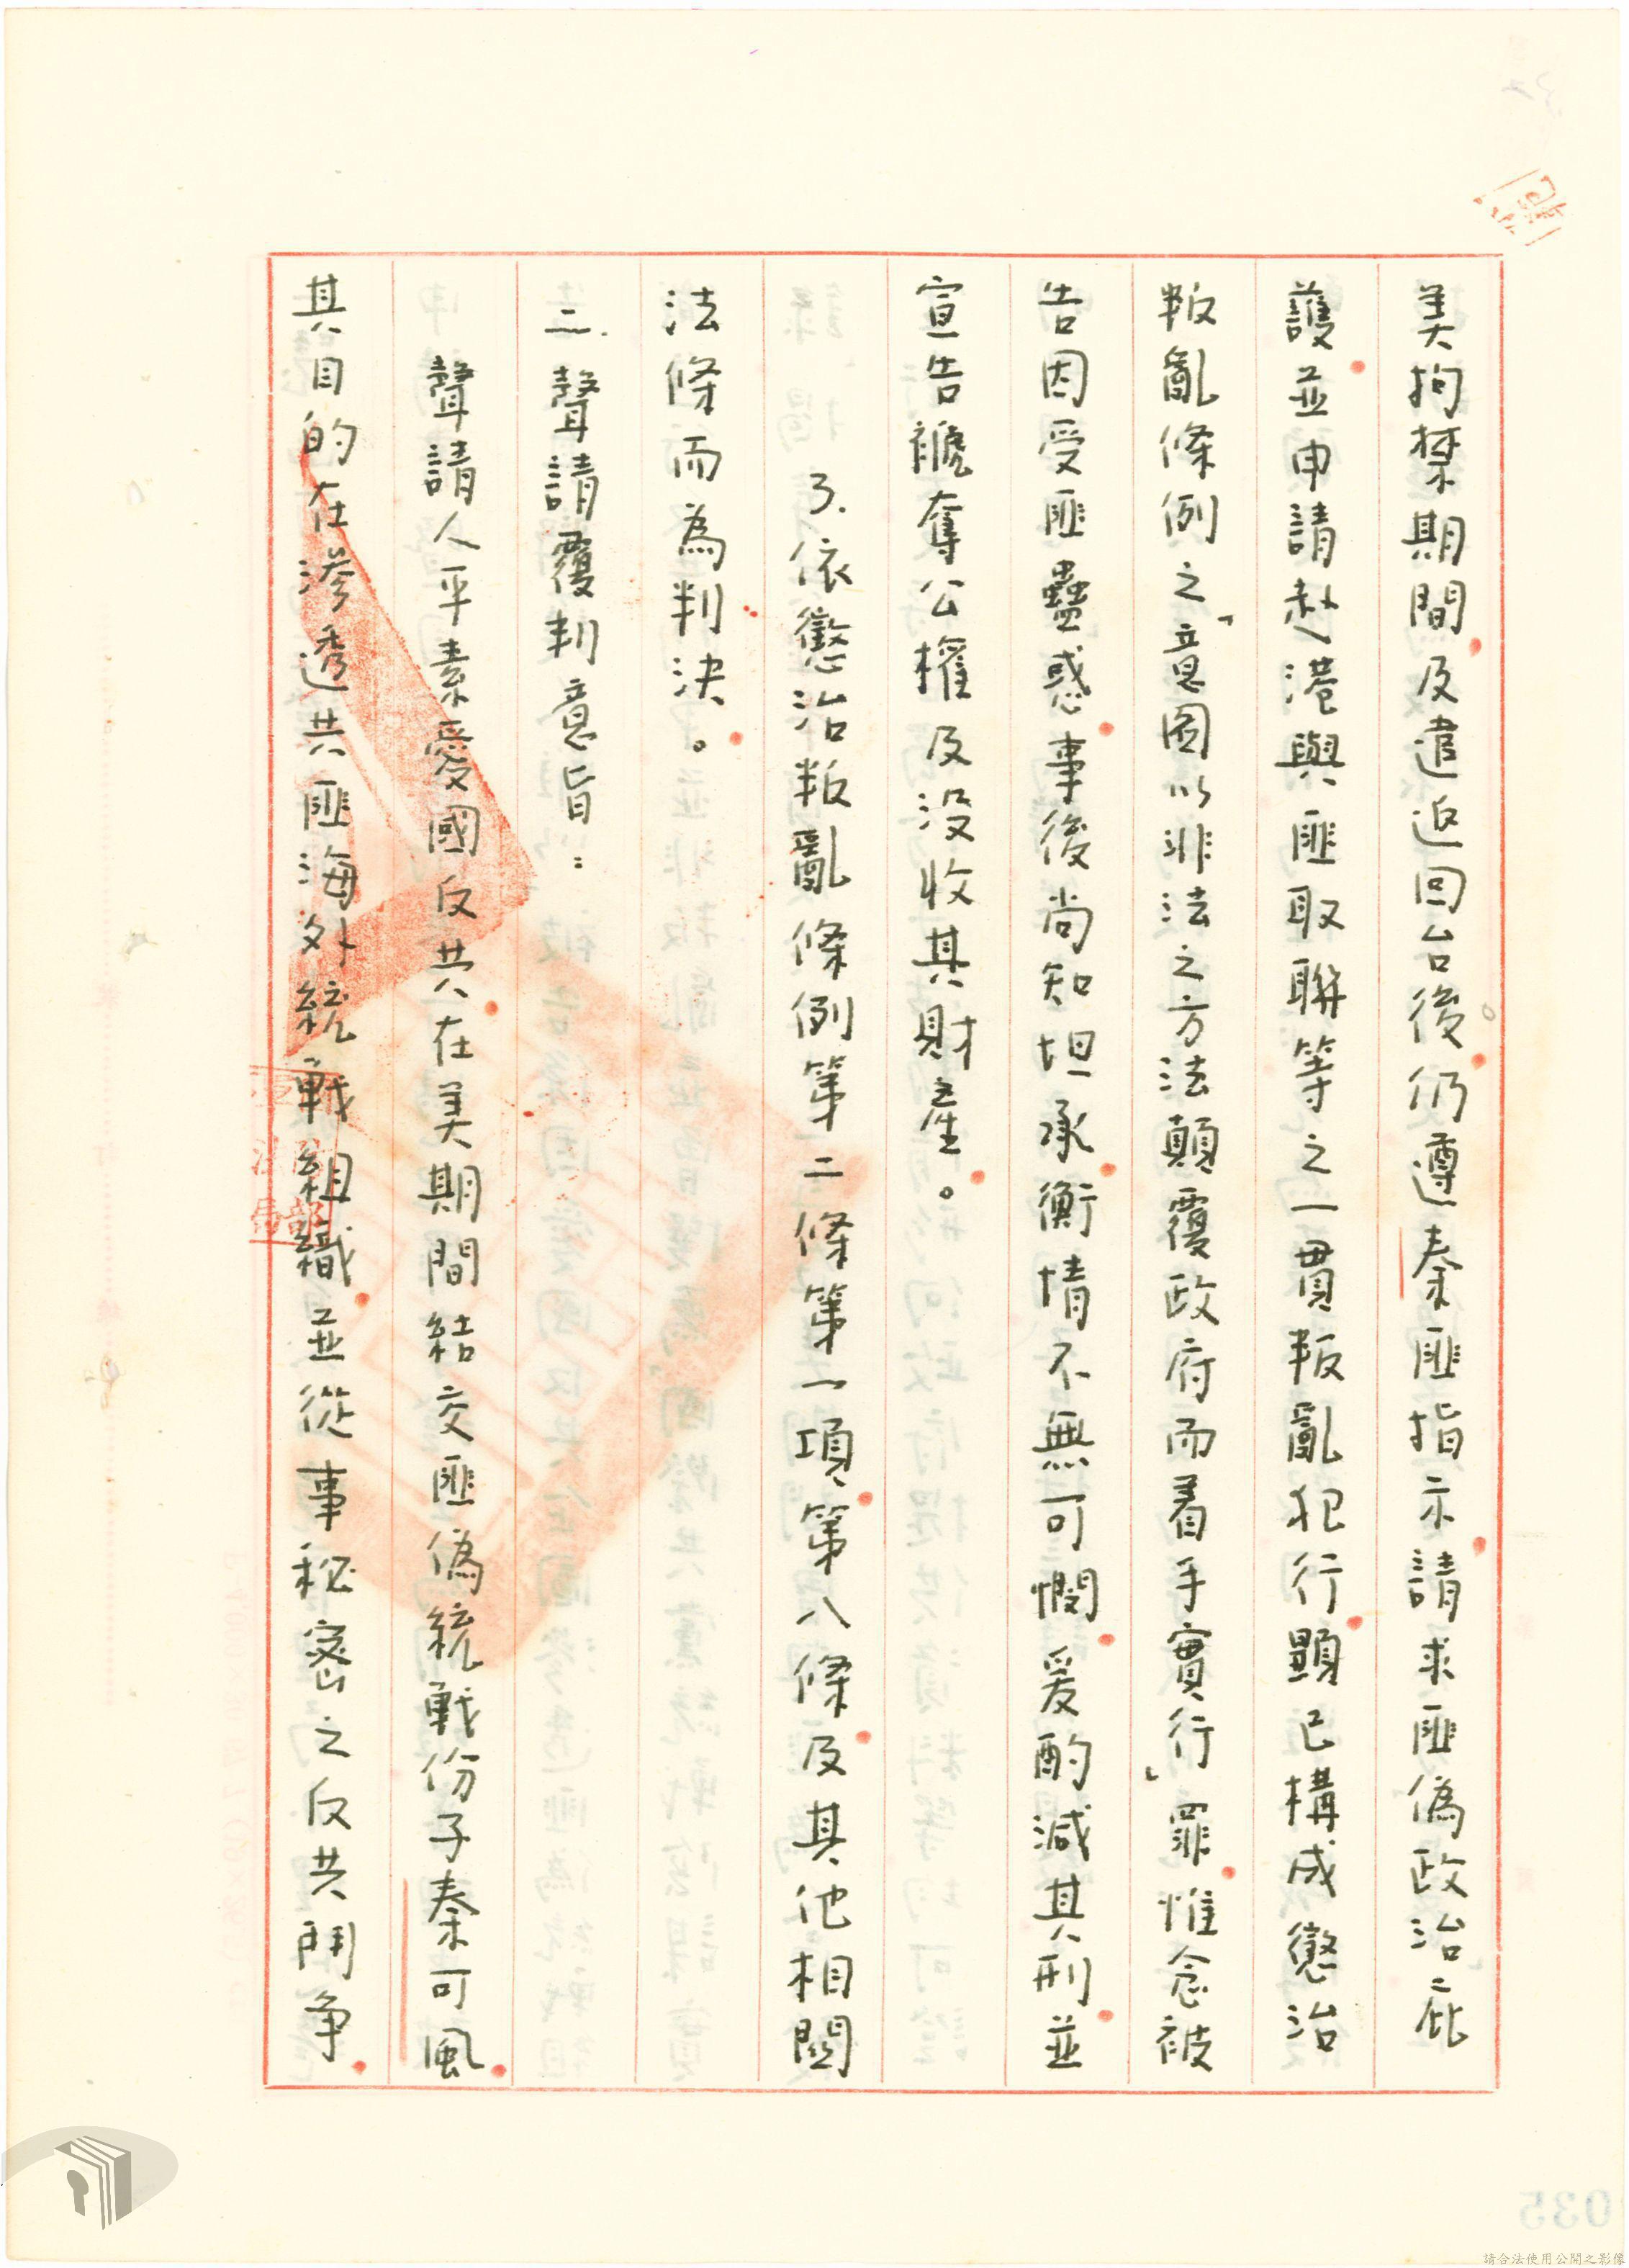 美拘禁期間及遣返回台後仍遵秦匪指示請求匪偽政治庇
護並申請赴港與匪取聯等之一貫叛亂犯行顯已構成懲治
叛亂條例之「意圖以非法之方法顛覆政府而着手實行」罪惟念被
告因受匪蠱惑事後尚知坦承衡情不無可憫爰酌減其刑並
宣告褫奪公權及没收其財產。
3.依懲治叛亂條例第二條第一項第八條及其他相関
法條而為判決。
三.聲請覆判意旨：
聲請人平素愛國反共在美期間結交匪偽統戰份子秦可風
其目的在滲透共匪海外統戰組織並從事秘密之反共鬥争
035
請合法使用公開之影像